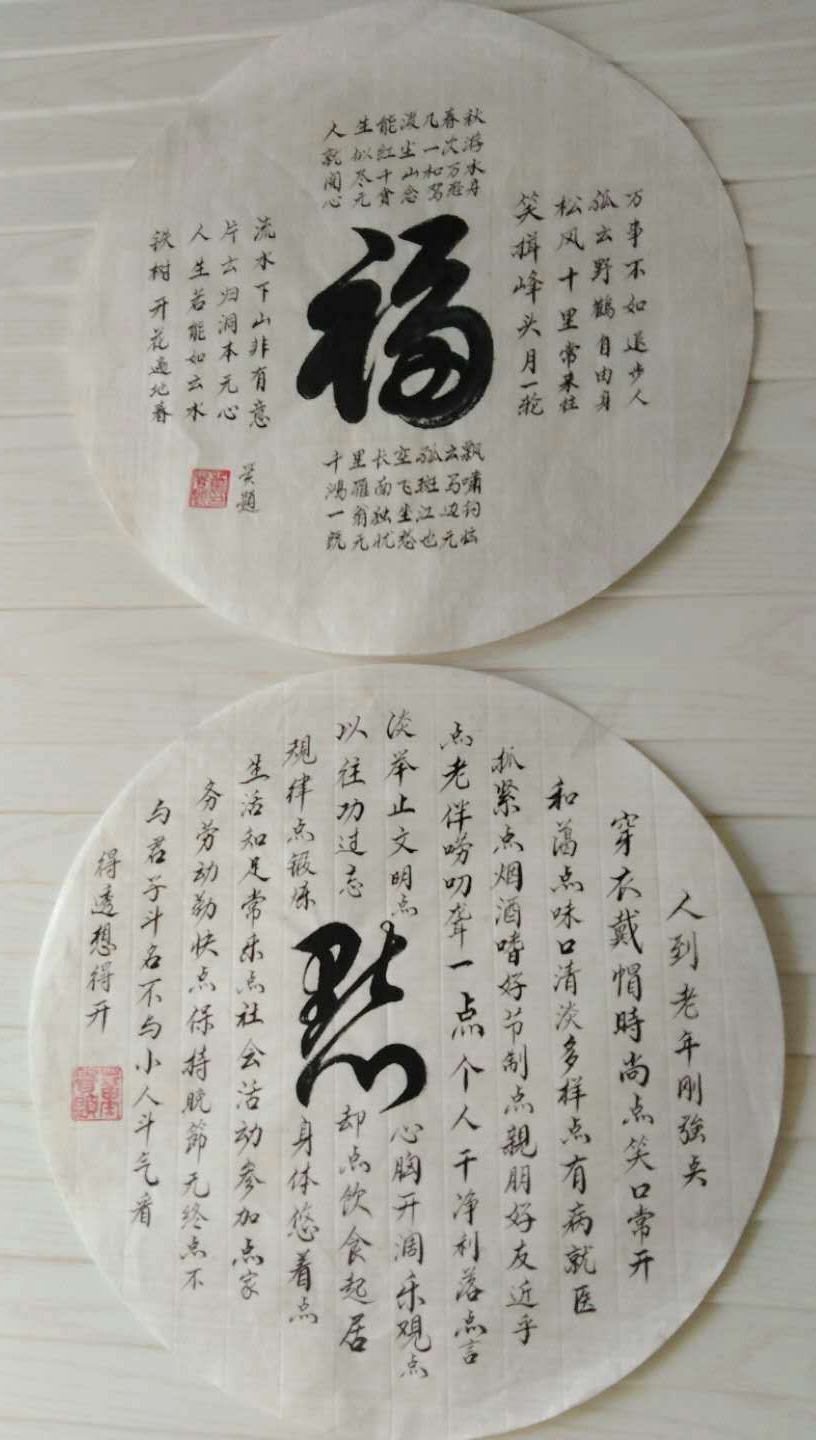 人生能渡几春秋
就似红尘一次游
阅尽千山和万水
万事不如退步人
孤云野鹤自由身
松风十里常来往
笑揖峰头月一轮
福
千里长空孤云飘
鸿雁南飞斑马啸
一翁独坐江边钓
流水下山非有意
片云归洞本无心
人生若能如云水
铁树开花遍地春
题
人到老年刚强点
穿衣戴帽時尚点笑口常开
和蔼点味口清淡多样点有病就医
抓紧点烟酒嗜好节制点親朋好友近乎
点老伴唠叨聋一点个人干净利落点言
淡举止文明点心胸开阔乐观点
以往功过忘却点饮食起居
规律点锻炼身体悠着点
點
生活知足常乐点社会活动参加点家
务劳动勤快点保持晚節无终点不
与君子斗名不与小人斗气看
得透想得开